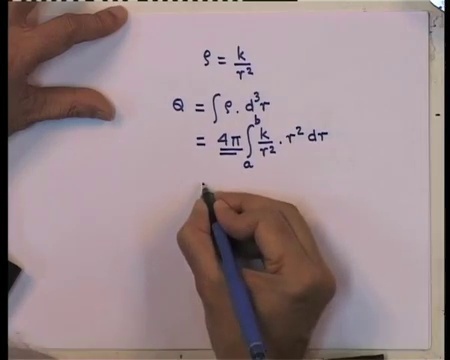 ρ = k/r²
Q = ∫ ρ. d³r
= 4π ∫ₐᵇ k/r² . r² dr